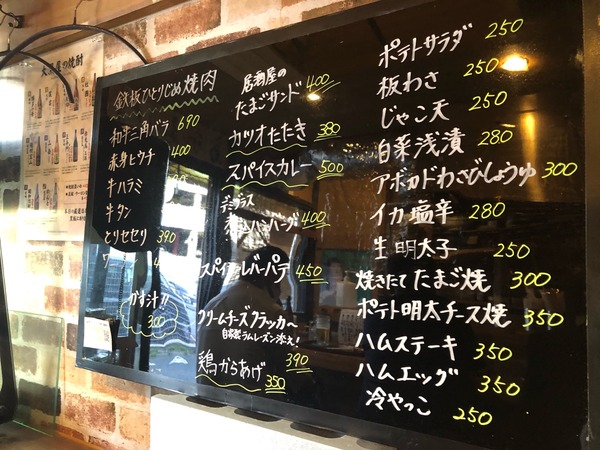 鉄板ひとりじめ焼肉
和牛三角バラ 690
赤身ヒウチ 400
牛ハラミ
牛タン
とりセセリ 390
かす汁!! 300
居酒屋の
たまごサンド 400
カツオたたき 380
スパイスカレー 500
デミグラス
煮込ハンバーグ 400
スパイスレバーパテ 450
クリームチーズクラッカー
自家製ラムレーズン添え! 390
鶏からあげ 350
ポテトサラダ 250
板わさ 250
じゃこ天 250
白菜浅漬 280
アボカドわさびしょうゆ 300
イカ塩辛 280
生明太子 250
焼きたてたまご焼 300
ポテト明太チーズ焼 350
ハムステーキ 350
ハムエッグ 350
冷やっこ 250